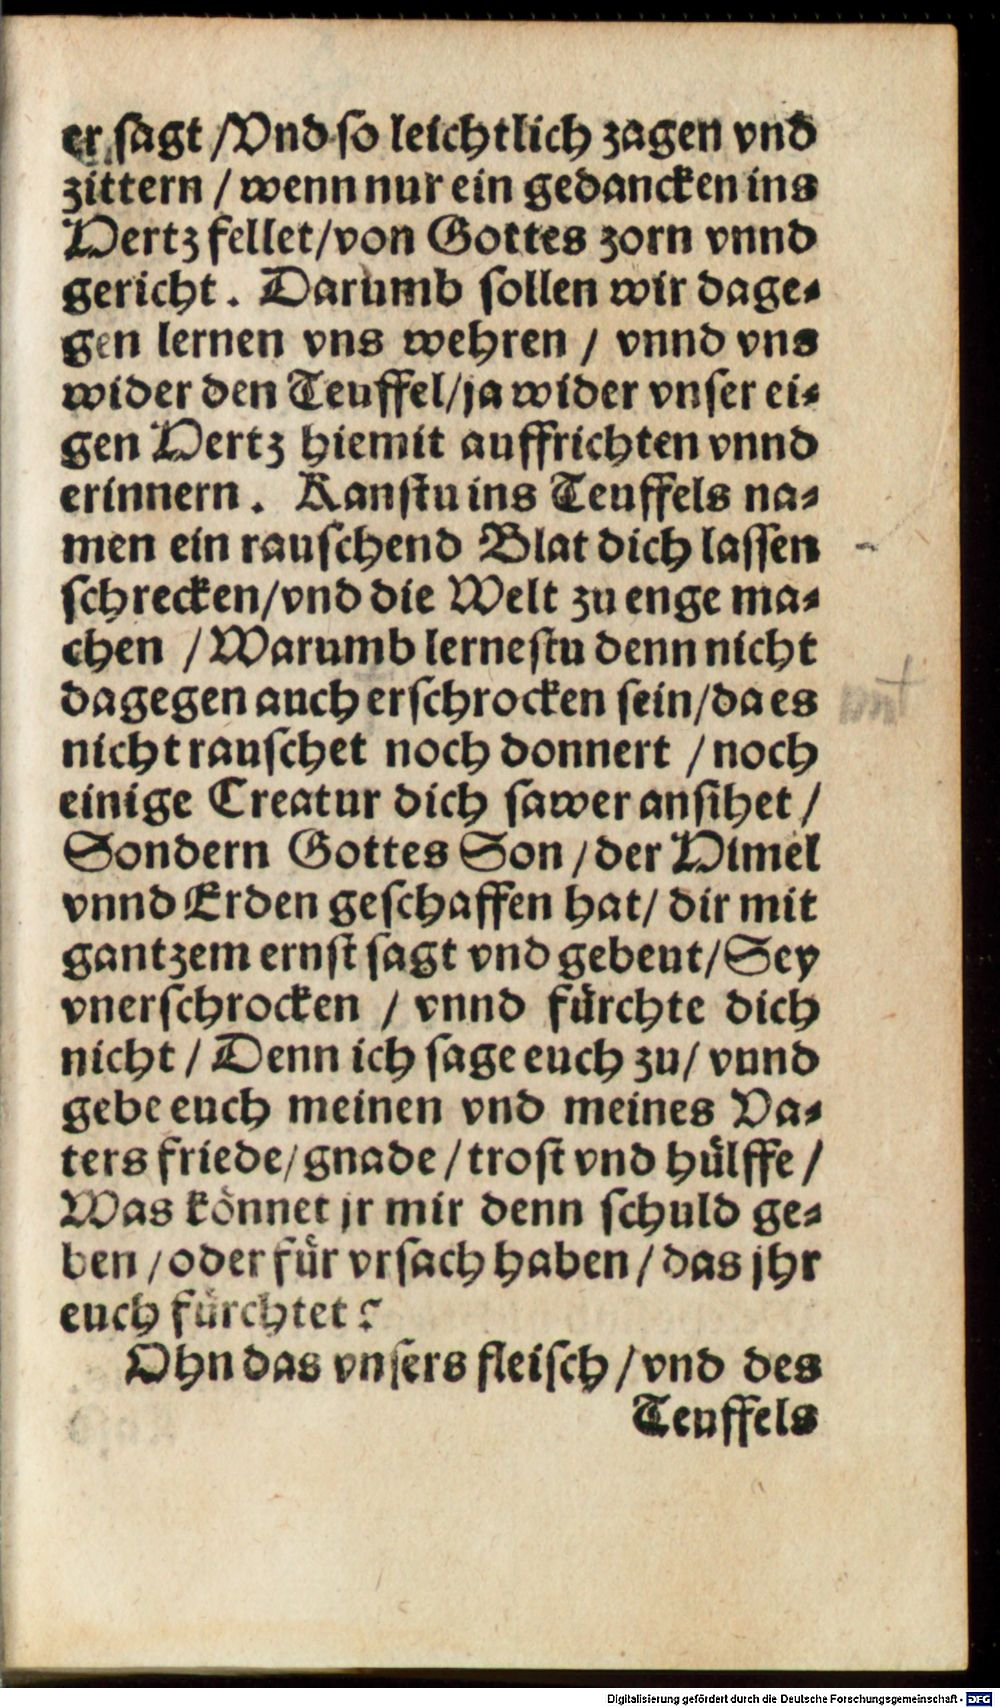 er sagt /Vnd so leichtlich zagen vnd
zittern / wenn nur ein gedancken ins
Hertz fellet/von Gottes zorn vnnd
gericht. Darumb sollen wir dage-
gen lernen vns wehren / vnnd vns
wider den Teuffel/ja wider vnser ei-
gen Hertz hiemit auffrichten vnnd
erinnern. Kanstu ins Teuffels na-
men ein rauschend Blat dich lassen
schrecken/vnd die Welt zu enge ma-
chen /Warumb lernestu denn nicht
dagegen auch erschrocken sein/da es
nicht rauschet noch donnert /noch
einige Creatur dich sawer ansihet/
Sondern Gottes Son/der Himel
vnnd Erden geschaffen hat/ dir mit
gantzem ernst sagt vnd gebeut/Sey
vnerschrocken / vnnd fürchte dich
nicht/ Denn ich sage euch zu/ vnnd
gebe euch meinen vnd meines Va-
ters friede/gnade/trost vnd hülffe/
Was könnet jr mir denn schuld ge-
ben/oder für vrsach haben/das jhr
euch fürchtet?
Ohn das vnsers fleisch/vnd des
Teuffels
Digitalisierung gefördert durch die Deutsche Forschungsgemeinschaft - DFG